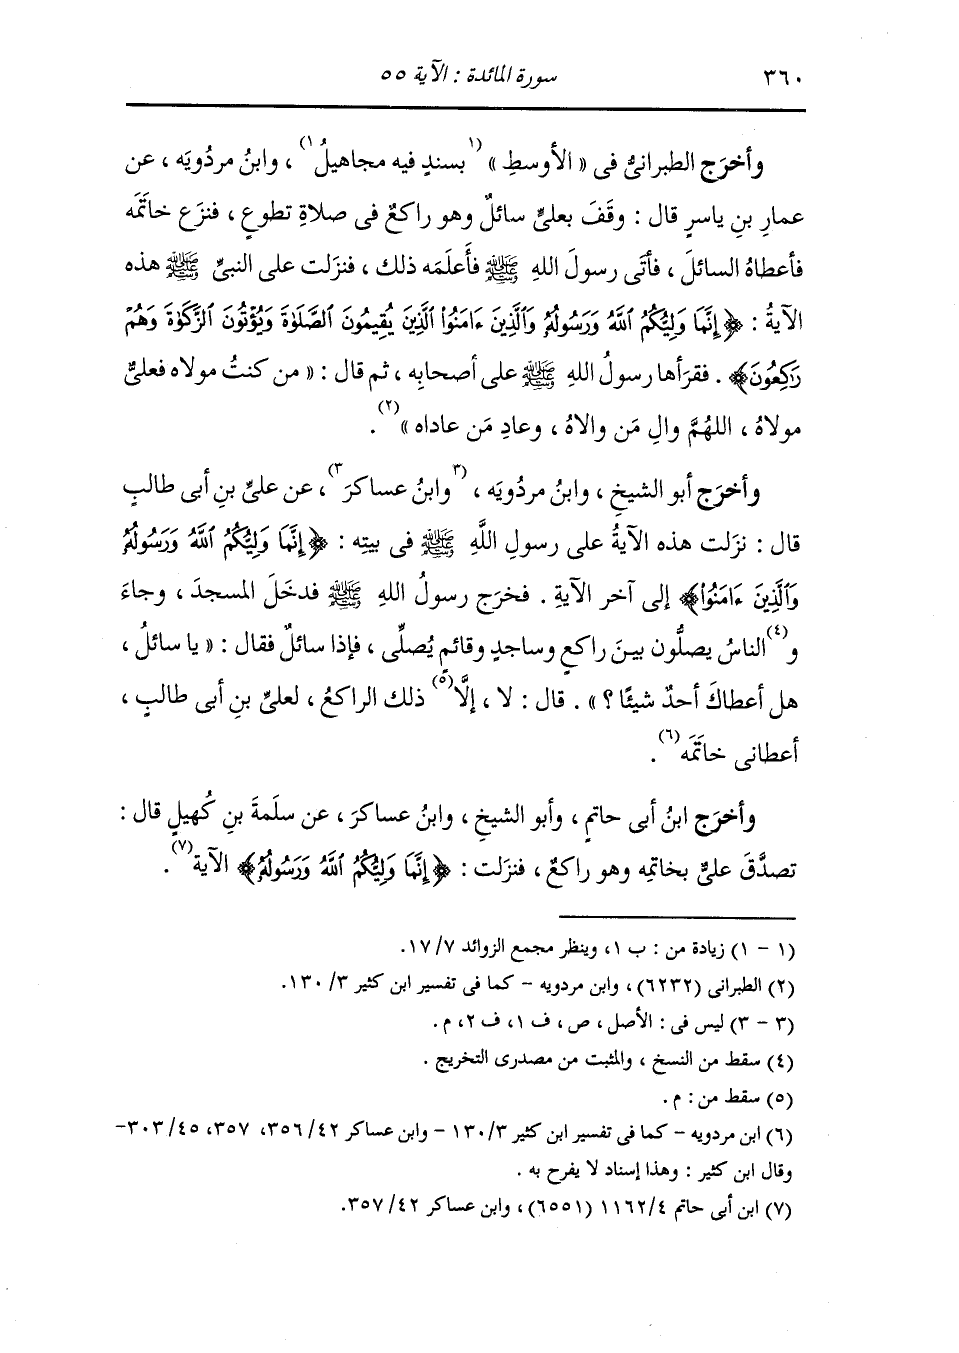 ٣٦٠ سورة المائدة : الآية ٥٥
وأخرَج الطبرانىُّ فى « الأوسطِ » (١بسندٍ فيه مجاهيلُ١) ، وابنُ مردُويَه ، عن
عمارِ بنِ ياسرٍ قال : وقَفَ بعلىٍّ سائلٌ وهو راكعٌ فى صلاةِ تطوعٍ ، فنزَع خاتَمَه
فأعطاهُ السائلَ ، فأتَى رسولَ اللهِ ﷺ فأَعلَمَه ذلك ، فنزَلت على النبىِّ ﷺ هذه
الآيةُ : ﴿إِنَّمَا وَلِيُّكُمُ ٱللَّهُ وَرَسُولُهُۥ وَٱلَّذِينَ ءَامَنُوا۟ ٱلَّذِينَ يُقِيمُونَ ٱلصَّلَوٰةَ وَيُؤْتُونَ ٱلزَّكَوٰةَ وَهُمْ
رَٰكِعُونَ﴾ . فقرَأها رسولُ اللهِ ﷺ على أصحابِه ، ثم قال : « من كنتُ مولاه فعلىٌّ
مولاهُ ، اللهُمَّ والِ مَن والاهُ ، وعادِ مَن عاداه »(٢) .
وأخرَج أبو الشيخِ ، وابنُ مردُويَه ، (٣وابنُ عساكرَ٣) ، عن علىِّ بنِ أبى طالبٍ
قال : نزَلت هذه الآيةُ على رسولِ اللَّهِ ﷺ فى بيتِه : ﴿إِنَّمَا وَلِيُّكُمُ ٱللَّهُ وَرَسُولُهُۥ
وَٱلَّذِينَ ءَامَنُوا۟﴾ إلى آخر الآيةِ . فخرَج رسولُ اللهِ ﷺ فدخَلَ المسجدَ ، وجاءَ
و(٤)الناسُ يصلُّون بينَ راكعٍ وساجدٍ وقائمٍ يُصلِّى ، فإذا سائلٌ فقال : « يا سائلُ ،
هل أعطاكَ أحدٌ شيئًا ؟ » . قال : لا ، إلَّا(٥) ذلك الراكعُ ، لعلىِّ بنِ أبى طالبٍ ،
أعطانى خاتَمَه(٦) .
وأخرَج ابنُ أبى حاتمٍ ، وأبو الشيخِ ، وابنُ عساكرَ ، عن سلَمةَ بنِ كُهيلٍ قال :
تصدَّقَ علىٌّ بخاتمِه وهو راكعٌ ، فنزَلت : ﴿إِنَّمَا وَلِيُّكُمُ ٱللَّهُ وَرَسُولُهُۥ﴾ الآية(٧) .
(١ - ١) زيادة من : ب ١، وينظر مجمع الزوائد ١٧/٧.
(٢) الطبرانى (٦٢٣٢) ، وابن مردويه - كما فى تفسير ابن كثير ١٣٠/٣.
(٣ - ٣) ليس فى : الأصل ، ص ، ف ١، ف ٢، م .
(٤) سقط من النسخ ، والمثبت من مصدرى التخريج .
(٥) سقط من : م .
(٦) ابن مردويه - كما فى تفسير ابن كثير ١٣٠/٣ - وابن عساكر ٣٥٦/٤٢، ٣٥٧، ٣٠٣/٤٥-
وقال ابن كثير : وهذا إسناد لا يفرح به .
(٧) ابن أبى حاتم ١١٦٢/٤ (٦٥٥١) ، وابن عساكر ٣٥٧/٤٢.